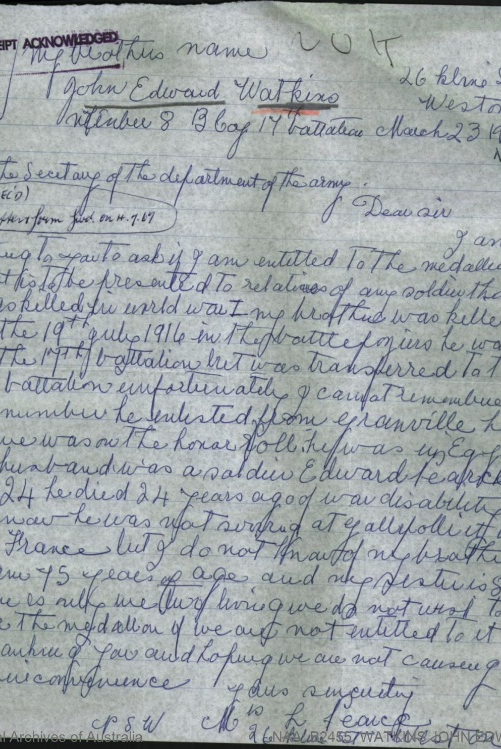 EIPT ACKNOWLEDGED
My brothers name
John Edward Watkins
26 kline
Weston
number 8 B Coy 17 battalion March 23 19
the Secetary of the department of the army.
EC'D)
form fwd. on 4.7.67
Dear sir
I am
to you to ask if I am entitled to the medallion
this to be presented to relatives of any soldier the
killed in world war I my brother was kille
the 19th July 1916 in the battle he wa
the 17th battalion but was transferred to t
battalion unfortunately I cannot remember
number he enlisted from granville h
was on the honor Roll he was in Egy
husband was a soldier Edward
24 he died 24 years ago of war disability
now he was not serving at gallipoli
France but I do not know of my brothe
75 years of age and my sister is
is only we two living we do not wish t
the medallion if we are not entitled to it
you and hoping we are not causeing
inconvenience
yours sincerely
N S W Mrs L Pearce
26
al Archives of Australia
NAA: B2455, WATKINS JOHN ED